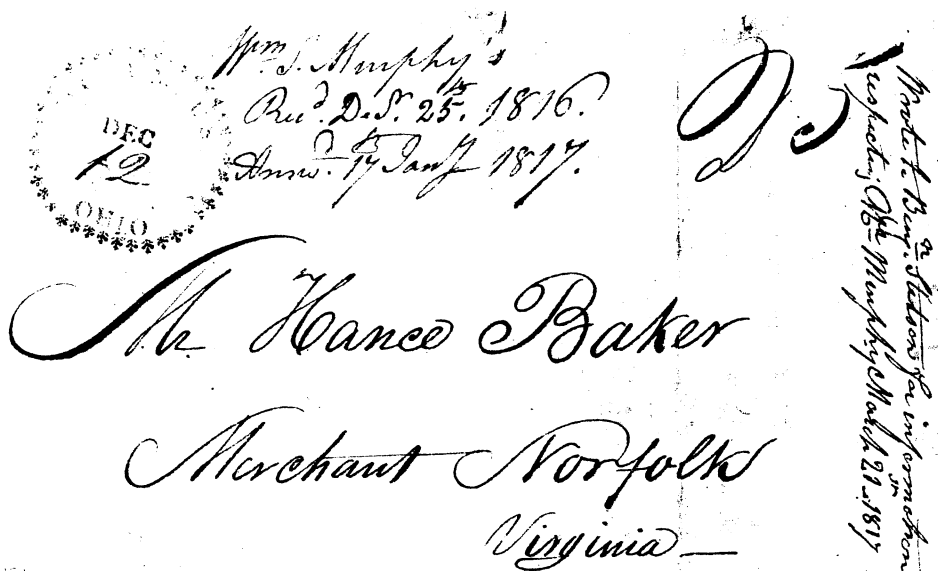 Wm. S. Murphy's
Recd. Decr. 25th. 1816.
Answd. 17th Jany 1817.
DEC
12
OHIO
25
Mr. Hance Baker
Merchant Norfolk
Virginia —
Wrote to Benjn. Stetson for information
respecting Wm Murphy March 21st 1817